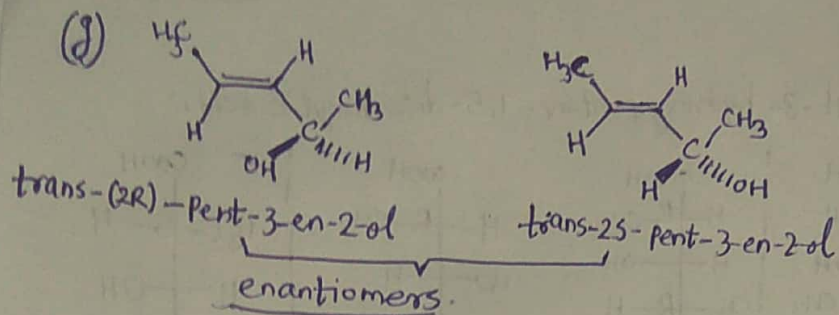 (g)
H3C H CH3 H C OH H
H3C H CH3 H C H OH
trans-(2R)-pent-3-en-2-ol trans-2S-pent-3-en-2-ol
enantiomers.